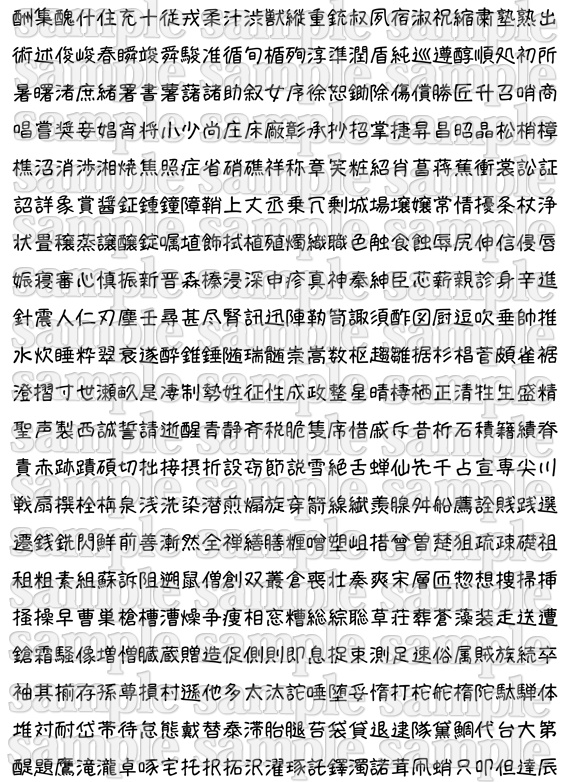 酬集醜什住充十従戎柔汁渋獣縦重銃叔夙宿淑祝縮粛塾熟出
術述俊峻春瞬竣舜駿准循旬楯殉淳準潤盾純巡遵醇順処初所
暑曙渚庶緒署書薯藷諸助叙女序徐恕鋤除傷償勝匠升召哨商
唱嘗奨妾娼宵将小少尚庄床廠彰承抄招掌捷昇昌昭晶松梢樟
樵沼消渉湘焼焦照症省硝礁祥称章笑粧紹肖菖蒋蕉衝裳訟証
詔詳象賞醤鉦鍾鐘障鞘上丈丞乗冗剰城場壌嬢常情擾条杖浄
状畳穣蒸譲醸錠嘱埴飾拭植殖燭織職色触食蝕辱尻伸信侵唇
娠寝審心慎振新晋森榛浸深申疹真神秦紳臣芯薪親診身辛進
針震人仁刃塵壬尋甚尽腎訊迅陣靭笥諏須酢図厨逗吹垂帥推
水炊睡粋翠衰遂酔錐錘随瑞髄崇嵩数枢趨雛据杉椙菅頗雀裾
澄摺寸世瀬畝是凄制勢姓征性成政整星晴棲栖正清牲生盛精
聖声製西誠誓請逝醒青静斉税脆隻席惜戚斥昔析石積籍績脊
責赤跡蹟碩切拙接摂折設窃節説雪絶舌蝉仙先千占宣専尖川
戦扇撰栓栴泉浅洗染潜煎煽旋穿箭線繊羨腺舛船薦詮賎践選
遷銭銑閃鮮前善漸然全禅繕膳糎噌塑岨措曾曽楚狙疏疎礎祖
租粗素組蘇訴阻遡鼠僧創双叢倉喪壮奏爽宋層匝惣想捜掃挿
掻操早曹巣槍槽漕燥争痩相窓糟総綜聡草荘葬蒼藻装走送遭
鎗霜騒像増憎臓蔵贈造促側則即息捉束測足速俗属賊族続卒
袖其揃存孫尊損村遜他多太汰詑唾堕妥惰打柁舵楕陀駄騨体
堆対耐岱帯待怠態戴替泰滞胎腿苔袋貸退逮隊黛鯛代台大第
醍題鷹滝瀧卓啄宅托択拓沢濯琢託鐸濁諾茸凧蛸只叩但達辰